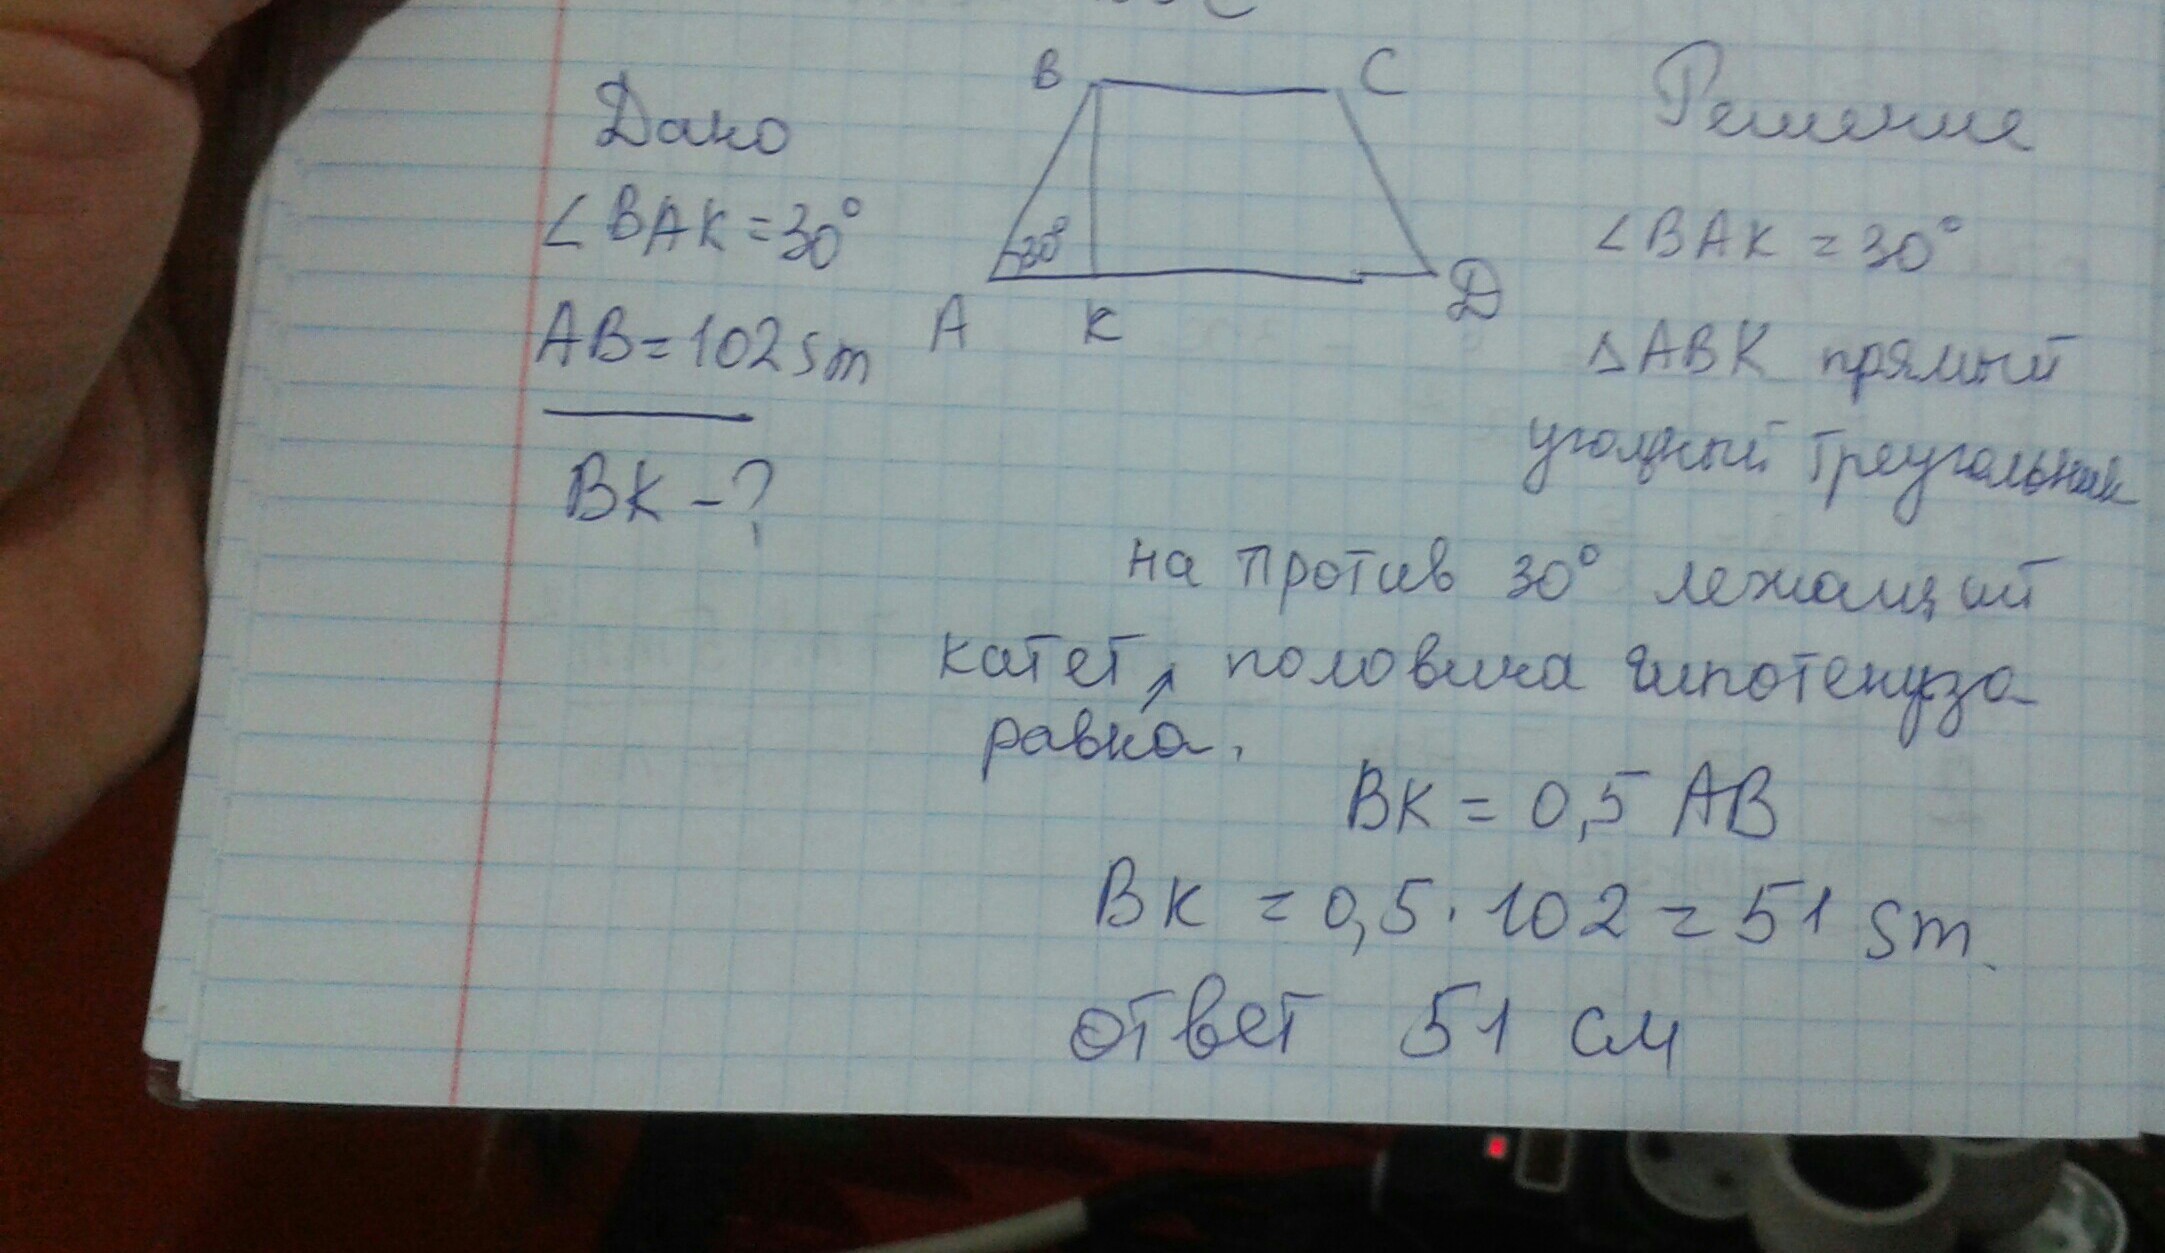 Дано
∠BAK=30°
AB=102sm
BK-?
B C
30°
A K D
Решение
∠BAK=30°
△ABK прямый
угольный треугольник
на против 30° лежащий
катет, половина гипотенуза
равна.
BK = 0,5 AB
BK = 0,5·102=51 sm.
ответ 51 см